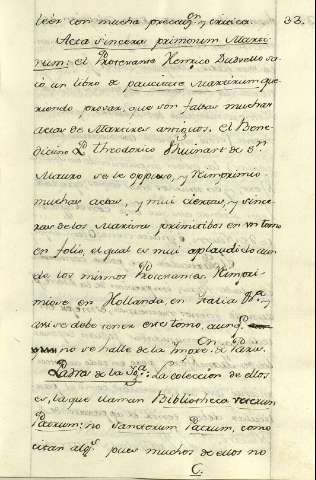 leer con mucha precauon. y critica.
33.
Acta Sincera primorum Marti-
rum: el Protestante Henrico Dudvello sa-
có un libro de paucitate Martirum que-
riendo provar, que son falsas muchas
actas de Martires antiguos. El Bene-
dictino P. Theodorico Ruinart de Sn.
Mauro se le oppuso, y Reimprimio
muchas actas, y mui ciertas, y since-
ras de los Martires primitibos en vn tomo
en folio, el qual es mui aplaudido aun
de los mismos Protestantes. Reimpri-
miose en Hollanda, en Italia &a. y
asi se debe tener este tomo, aunqe.
no se halle de la Impre. en Paris.
Padres de la Yga.: La coleccion de ellos
es, la que llaman Bibliotheca veterum
Patrum: no Sanctorum Patrum, como
citan algs. pues muchos de ellos no
C.